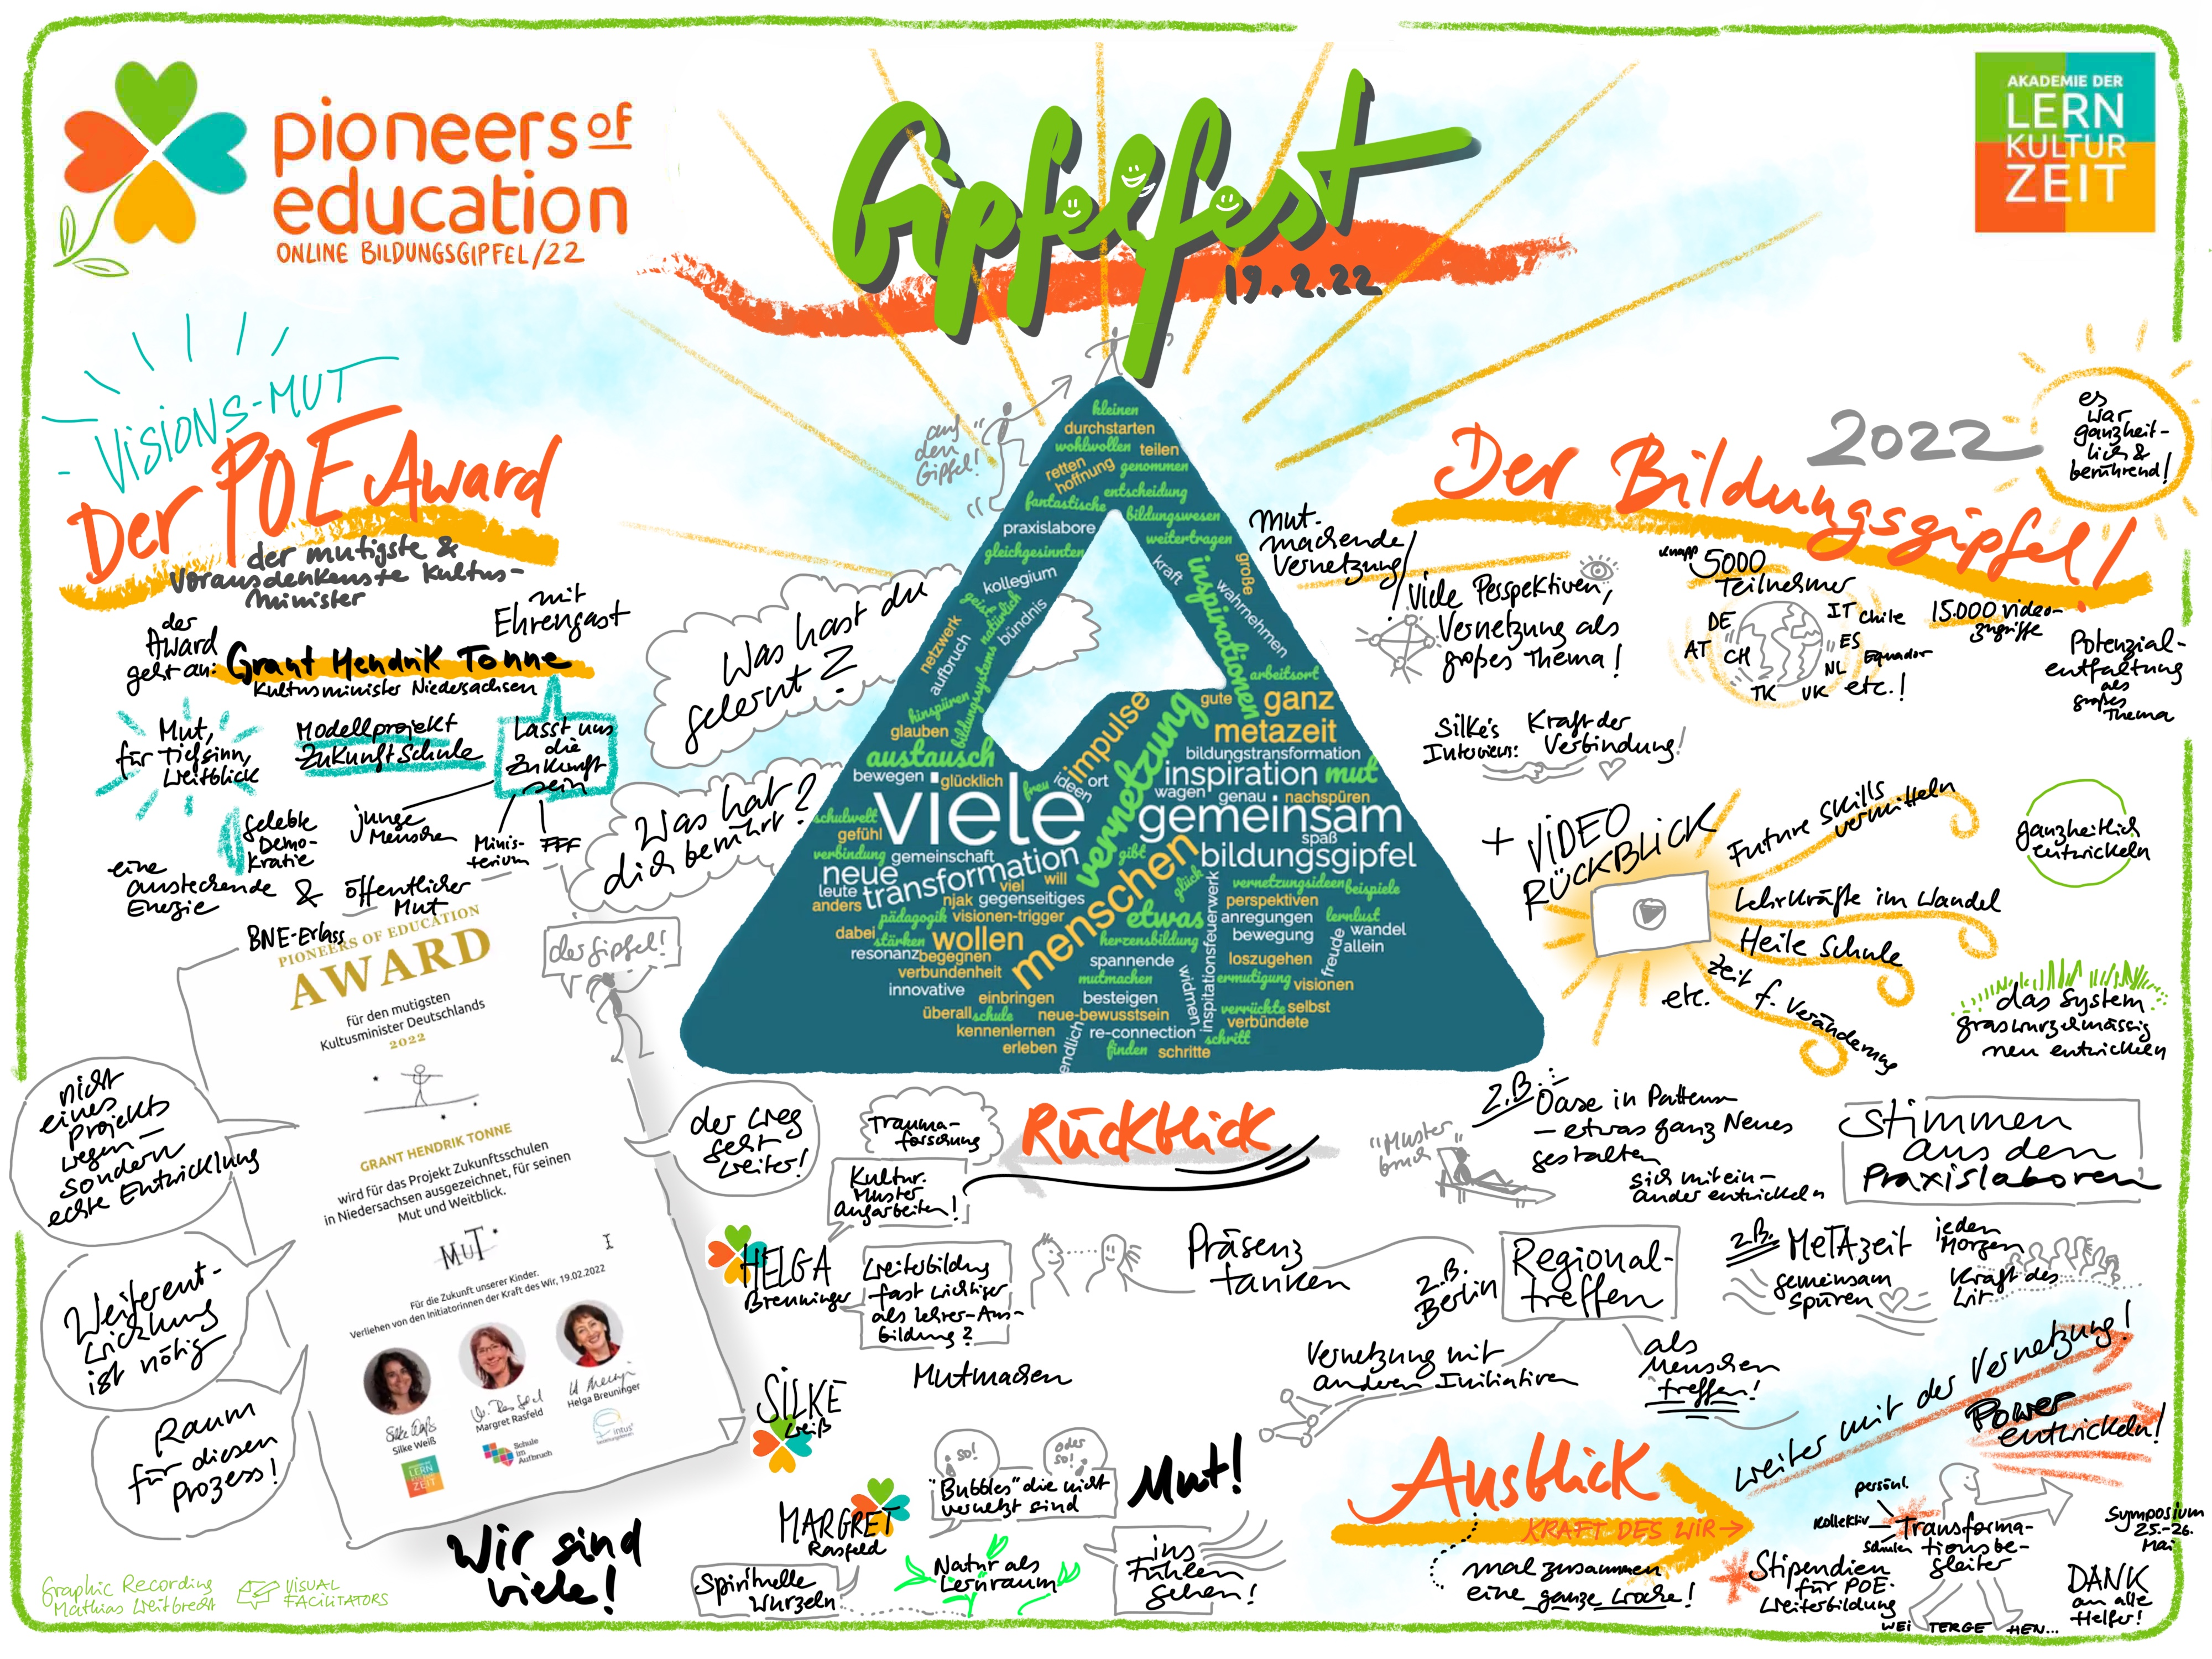 pioneers of
education
ONLINE BILDUNGSGIPFEL/22
Gipfelfest
19.2.22
AKADEMIE DER
LERN
KULTUR
ZEIT
VISIONS-MUT
Der POE Award
der mutigste &
Vorausdenkenste Kultus-
minister
der
Award
geht an:
mit
Ehrengast
Grant Hendrik Tonne
Kultusminister Niedersachsen
Mut,
für Tiefsinn,
Weitblick
Modellprojekt
Zukunft Schule
Lasst uns
die
Zukunft
sein
gelebte
Demo-
kratie
junge
Menschen
Minis-
terium
FFF
eine
ansteckende
Energie
&
öffentlicher
Mut
BNE-Erlass
PIONEERS OF EDUCATION
AWARD
für den mutigsten
Kultusminister Deutschlands
2022
GRANT HENDRIK TONNE
wird für das Projekt Zukunftsschulen
in Niedersachsen ausgezeichnet, für seinen
Mut und Weitblick.
MUT
Für die Zukunft unserer Kinder.
Verliehen von den Initiatorinnen der Kraft des Wir, 19.02.2022
Silke Weiß
Margret Rasfeld
Helga Breuninger
LERN
ZEIT
Schule
im
Aufbruch
intus³
nicht
eines
Projekts
wegen –
sondern
echte Entwicklung
Weiterent-
wicklung
ist nötig
Raum
für diesen
Prozess!
der Gipfel!
der Weg
geht
weiter!
Wir sind
viele!
Graphic Recording
Mathias Weitbrecht
VISUAL
FACILITATORS
"auf
den
Gipfel!"
Was hast du
gelernt?
Was hat
dich berührt?
kleinen
durchstarten
wohlwollen teilen
retten
hoffnung
genommen
entscheidung
fantastische
bildungswesen
praxislabore
weitertragen
gleichgesinnten
kraft
große
kollegium
inspirationen
wahrnehmen
geist
natürlich
bündnis
netzwerk
aufbruch
bildungssystems
hinspüren
arbeitsort
gute
ganz
glauben
impulse
metazeit
austausch
vernetzung
bildungstransformation
bewegen
glücklich
freu
ideen
ort
inspiration
mut
wagen
genau
nachspüren
viele
gemeinsam
schulwelt
gefühl
spaß
verbindung
gemeinschaft
gibt
bildungsgipfel
neue
transformation
menschen
leute
viel
will
glück
vernetzungsideen
beispiele
anders
njak
gegenseitiges
perspektiven
pädagogik
visionen-trigger
etwas
anregungen
lernlust
dabei
stärken
wollen
herzensbildung
inspitationsfeuerwerk
bewegung
freude
wandel
allein
resonanz
begegnen
spannende
loszugehen
verbundenheit
mutmachen
widmen
ermutigung
visionen
innovative
einbringen
besteigen
verrückte
selbst
überall
schule
neue-bewusstsein
verbündete
kennenlernen
endlich
re-connection
schritt
erleben
finden
schritte
2022
es
war
ganzheit-
lich &
berührend!
Der Bildungsgipfel!
mut-
machende
Vernetzung!
Viele Perspektiven,
Vernetzung als
großes Thema!
knapp
5000
Teilnehmer
DE
AT
CH
TK
UK
NL
ES
IT
Chile
Equador
etc.!
15.000 Video-
zugriffe
Potenzial-
entfaltung
als
großes
Thema
Silke's
Interviews:
Kraft der
Verbindung!
+ VIDEO
RÜCKBLICK
Future Skills
vermitteln
Lehrkräfte im Wandel
Heile Schule
Zeit f. Veränderung
etc.
ganzheitlich
entwickeln
das System
graswurzelmässig
neu entwickeln
Rückblick
Trauma-
forschung
Kultur.
Muster
angarbeiten!
HELGA
Breuninger
Weiterbildung
fast wichtiger
als Lehrer-Aus-
bildung?
Präsenz
tanken
Mutmachen
SILKE
Weiß
MARGRET
Rasfeld
so!
oder
so!
"Bubbles" die nicht
vernetzt sind
Mut!
Spirituelle
Wurzeln
Natur als
Lernraum
ins
Fühlen
gehen!
"Muster
bruch"
z.B.
Oase in Pattensen
– etwas ganz Neues
gestalten
sich mitein-
ander entwickeln
Stimmen
aus den
Praxislaboren
z.B.
Berlin
Regional-
treffen
Vernetzung mit
anderen Initiativen
als
Menschen
treffen!
z.B. METAzeit
gemeinsam
spüren
jeden
Morgen
Kraft des
Wir
Ausblick
KRAFT DES WIR
mal zusammen
eine ganze Woche!
weiter mit der Vernetzung!
Power
entwickeln!
persönl.
Kollektiv
Schulen
Transforma-
tionsbe-
gleiter
Stipendien
für POE-
Weiterbildung
WEI TERGE HEN...
Symposium
25.-26.
Mai
DANK
an alle
Helfer!